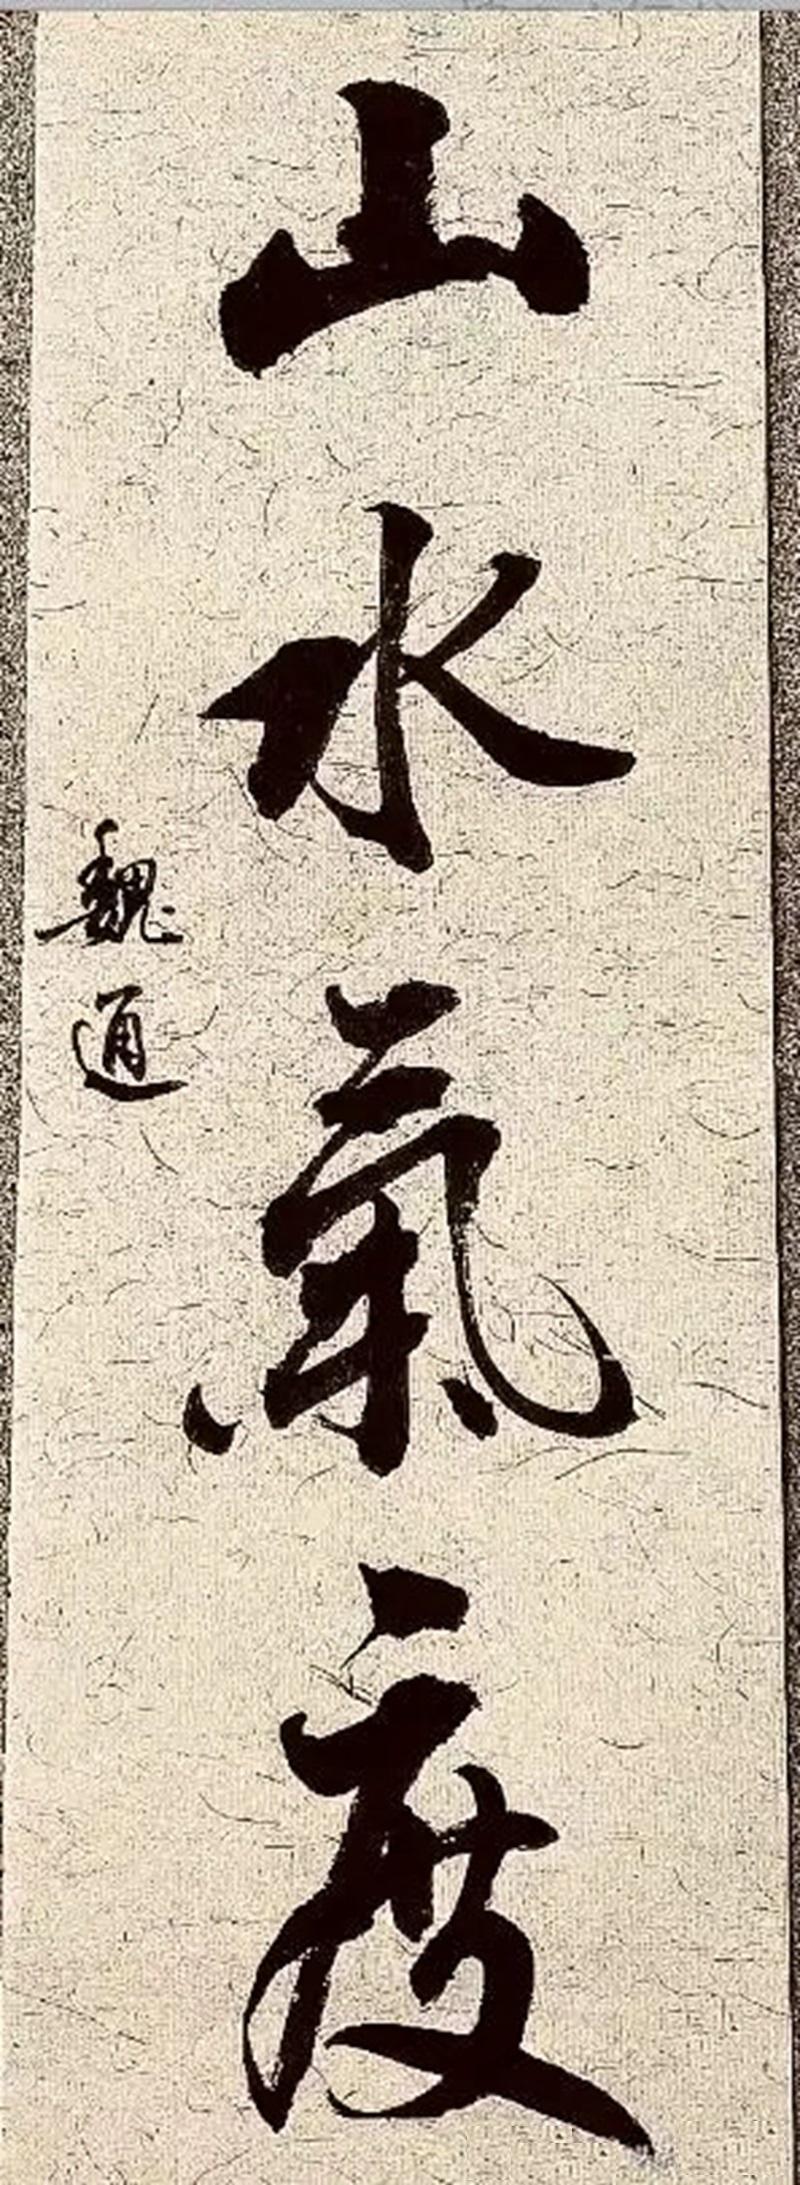 山水氣度
魏通